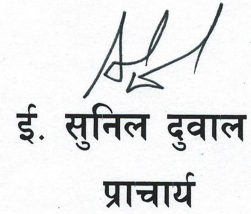 ई. सुनिल दुवाल
प्राचार्य